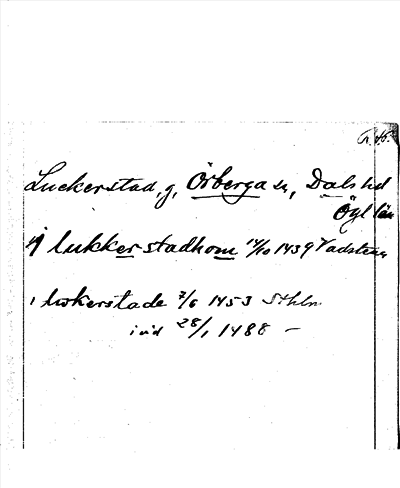 Luckerstad, g, Örberga sn, Dals hd
Ögl län
j lukkerstadhom 14/10 1439 Vadstena
i lwkerstade 7/6 1453 Sthlm
ivid 28/1 1488 —